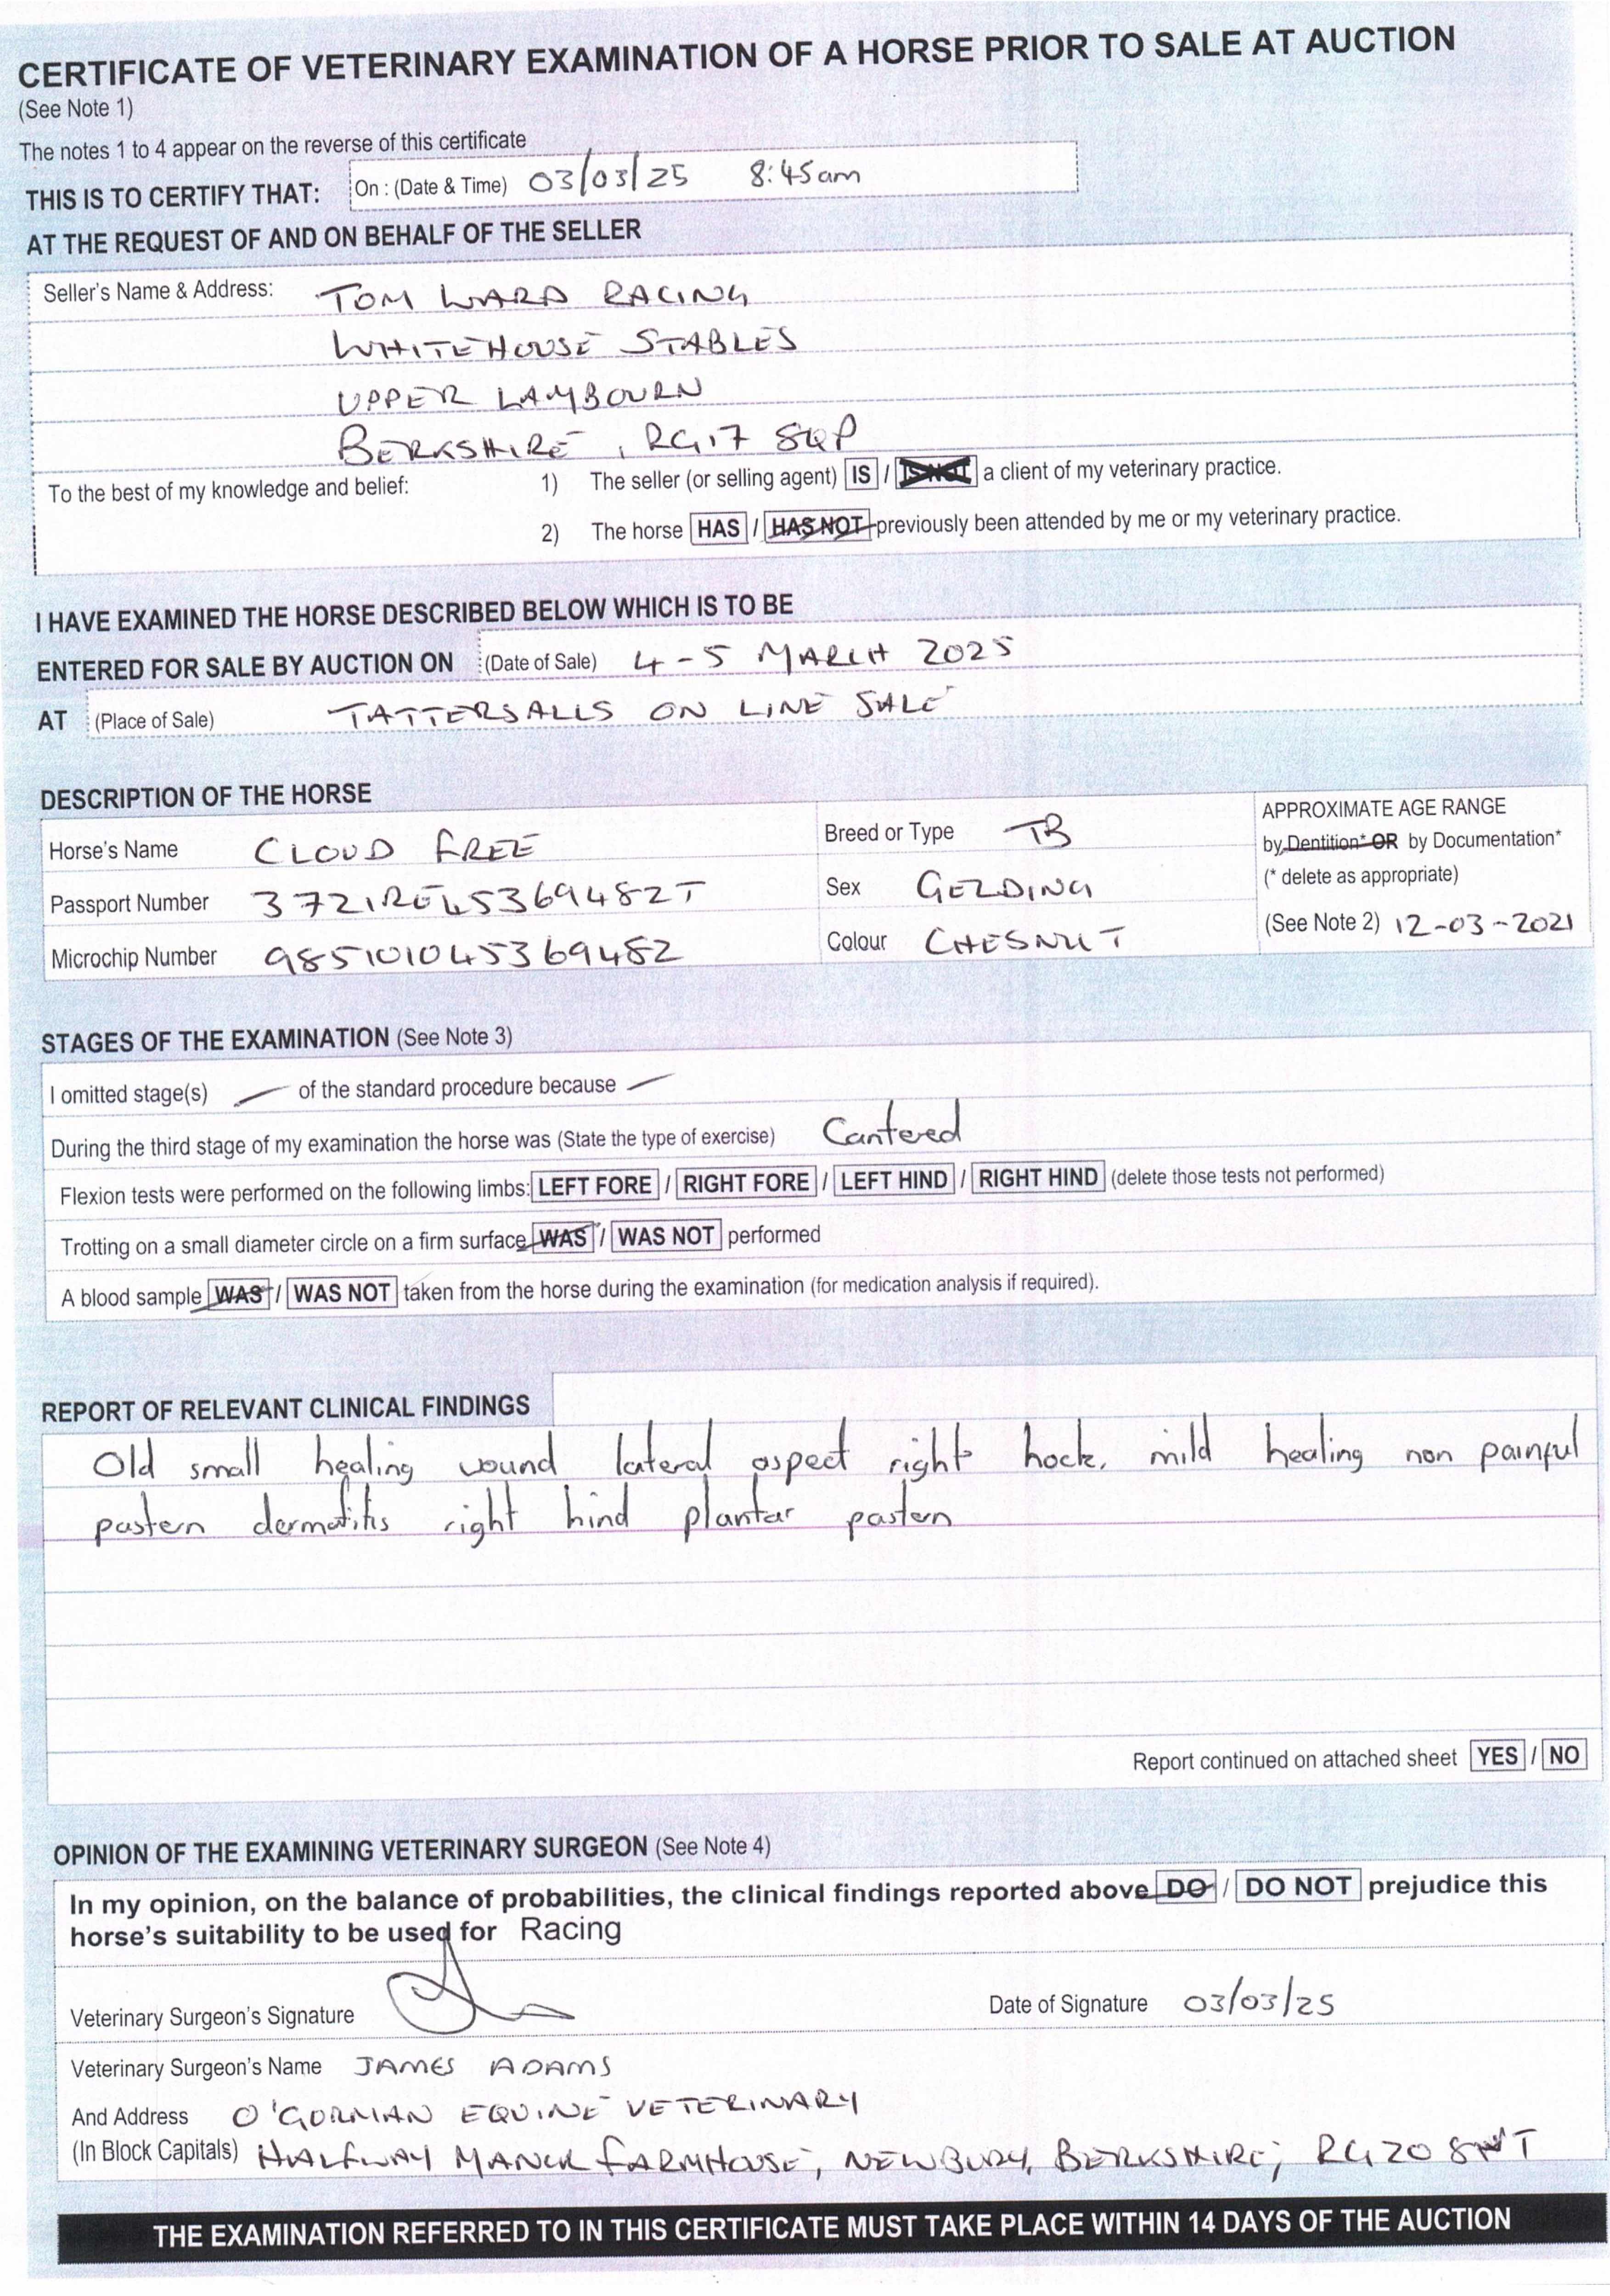 CERTIFICATE OF VETERINARY EXAMINATION OF A HORSE PRIOR TO SALE AT AUCTION
(See Note 1)
The notes 1 to 4 appear on the reverse of this certificate
THIS IS TO CERTIFY THAT: On : (Date & Time) 03/03/25 8:45am
AT THE REQUEST OF AND ON BEHALF OF THE SELLER
Seller's Name & Address: TOM WARD RACING
WHITEHOUSE STABLES
UPPER LAMBOURN
BERKSHIRE, RG17 8QP
To the best of my knowledge and belief: 1) The seller (or selling agent) IS / IS NOT a client of my veterinary practice.
2) The horse HAS / HAS NOT previously been attended by me or my veterinary practice.
I HAVE EXAMINED THE HORSE DESCRIBED BELOW WHICH IS TO BE
ENTERED FOR SALE BY AUCTION ON (Date of Sale) 4-5 MARCH 2025
AT (Place of Sale) TATTERSALLS ON LINE SALE
DESCRIPTION OF THE HORSE
Horse's Name CLOUD FREE Breed or Type TB APPROXIMATE AGE RANGE
by Dentition* OR by Documentation*
Passport Number 372IRE45369482T Sex GELDING (* delete as appropriate)
Microchip Number 985101045369482 Colour CHESNUT (See Note 2) 12-03-2021
STAGES OF THE EXAMINATION (See Note 3)
I omitted stage(s) — of the standard procedure because —
During the third stage of my examination the horse was (State the type of exercise) Cantered
Flexion tests were performed on the following limbs: LEFT FORE / RIGHT FORE / LEFT HIND / RIGHT HIND (delete those tests not performed)
Trotting on a small diameter circle on a firm surface WAS / WAS NOT performed
A blood sample WAS / WAS NOT taken from the horse during the examination (for medication analysis if required).
REPORT OF RELEVANT CLINICAL FINDINGS
Old small healing wound lateral aspect right hock, mild healing non painful
pastern dermatitis right hind plantar pastern
Report continued on attached sheet YES / NO
OPINION OF THE EXAMINING VETERINARY SURGEON (See Note 4)
In my opinion, on the balance of probabilities, the clinical findings reported above DO / DO NOT prejudice this
horse's suitability to be used for Racing
Veterinary Surgeon's Signature Date of Signature 03/03/25
Veterinary Surgeon's Name JAMES ADAMS
And Address O'GORMAN EQUINE VETERINARY
(In Block Capitals) HALFWAY MANOR FARMHOUSE, NEWBURY, BERKSHIRE, RG20 8NT
THE EXAMINATION REFERRED TO IN THIS CERTIFICATE MUST TAKE PLACE WITHIN 14 DAYS OF THE AUCTION